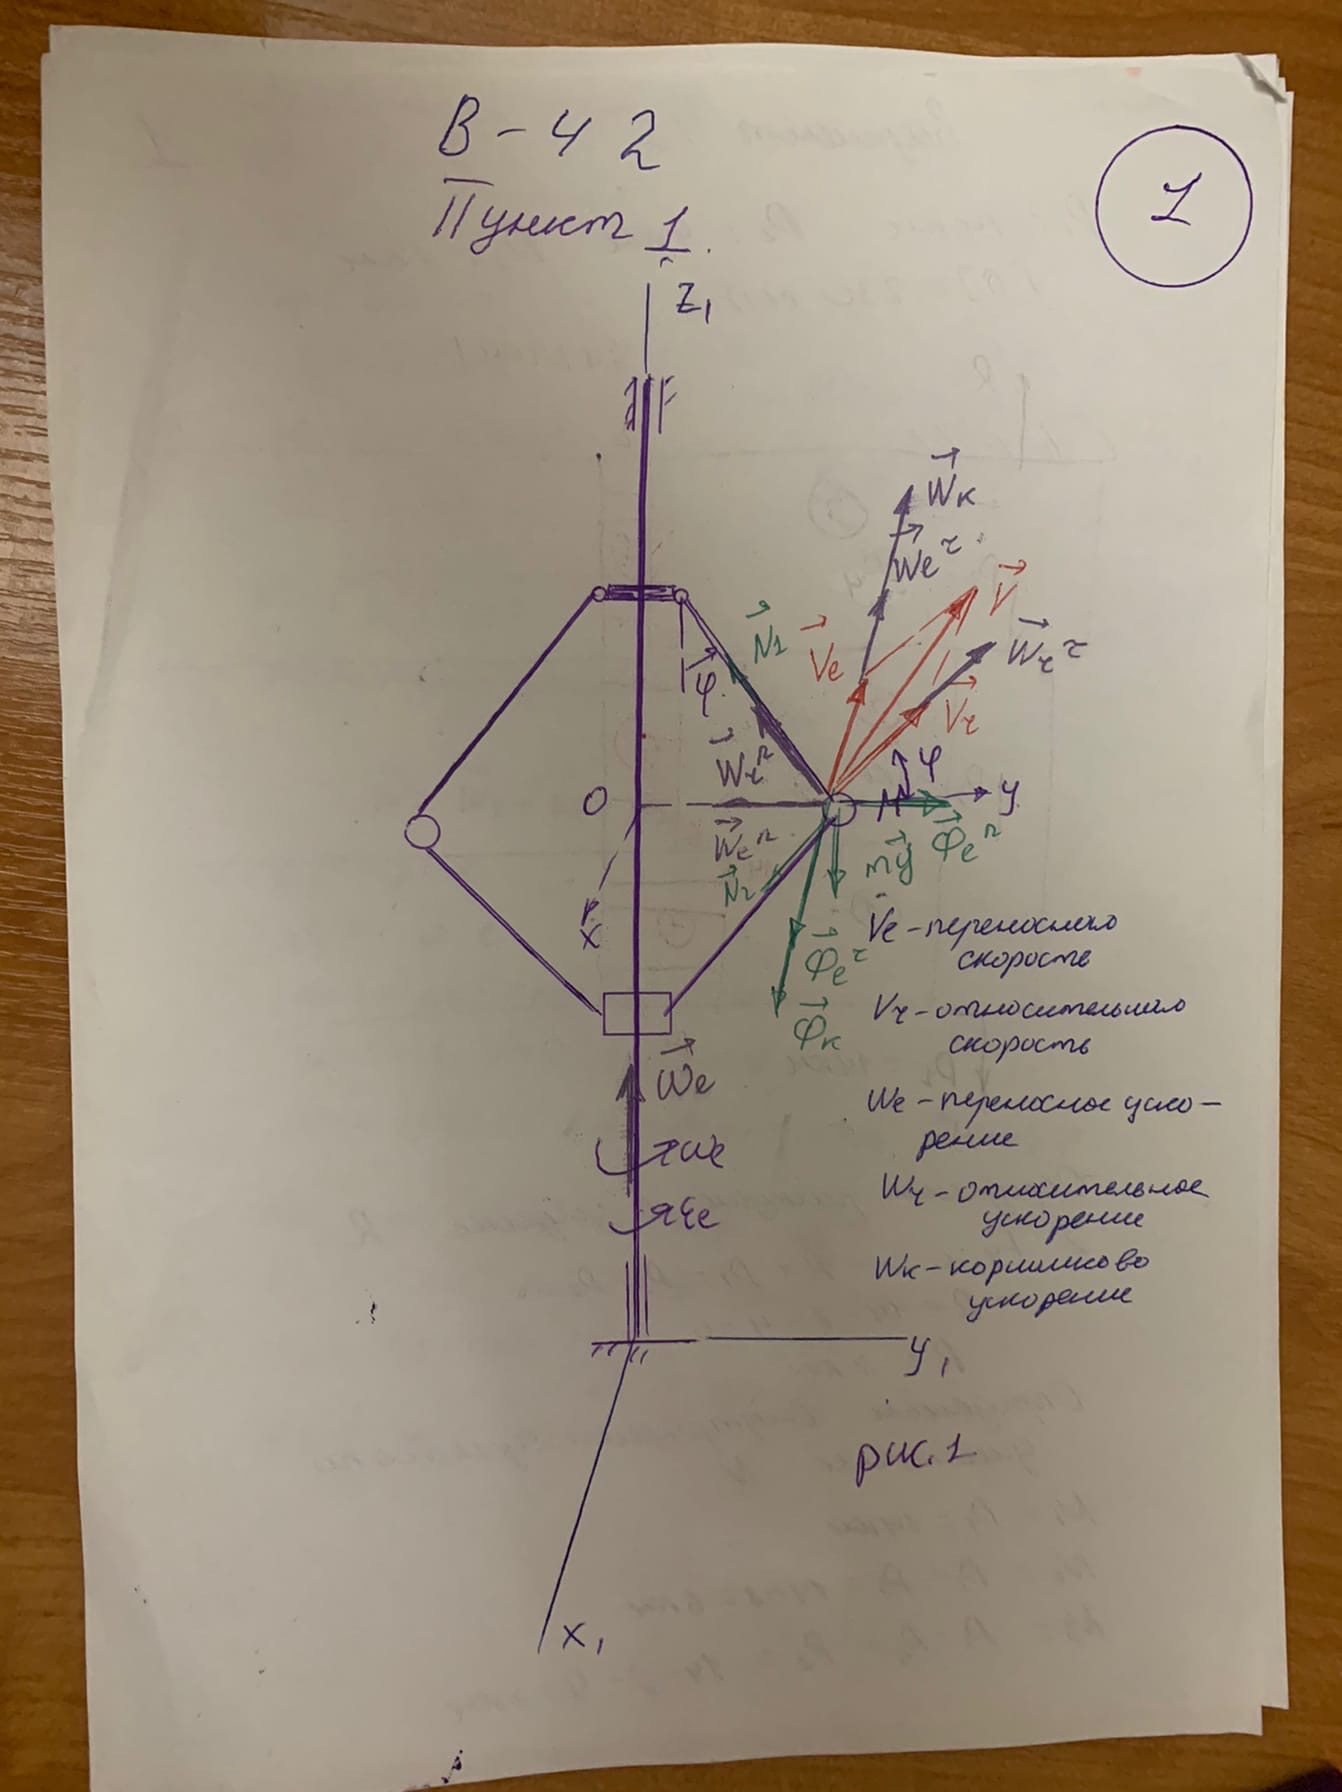 В-42
1
Пункт 1.
Z₁
Wк
Weτ
V
N1
Ve
Wrτ
Vr
φ
φ
Wrn
O
M
y
Wen
Φen
mg
N2
x
Φeτ
Φк
Ve - переносная
скорость
Vr - относительная
скорость
We - переносное уско-
рение
Wr - относительное
ускорение
Wк - кориолисово
ускорение
ωe
ωe
εe
y₁
рис. 1
x₁